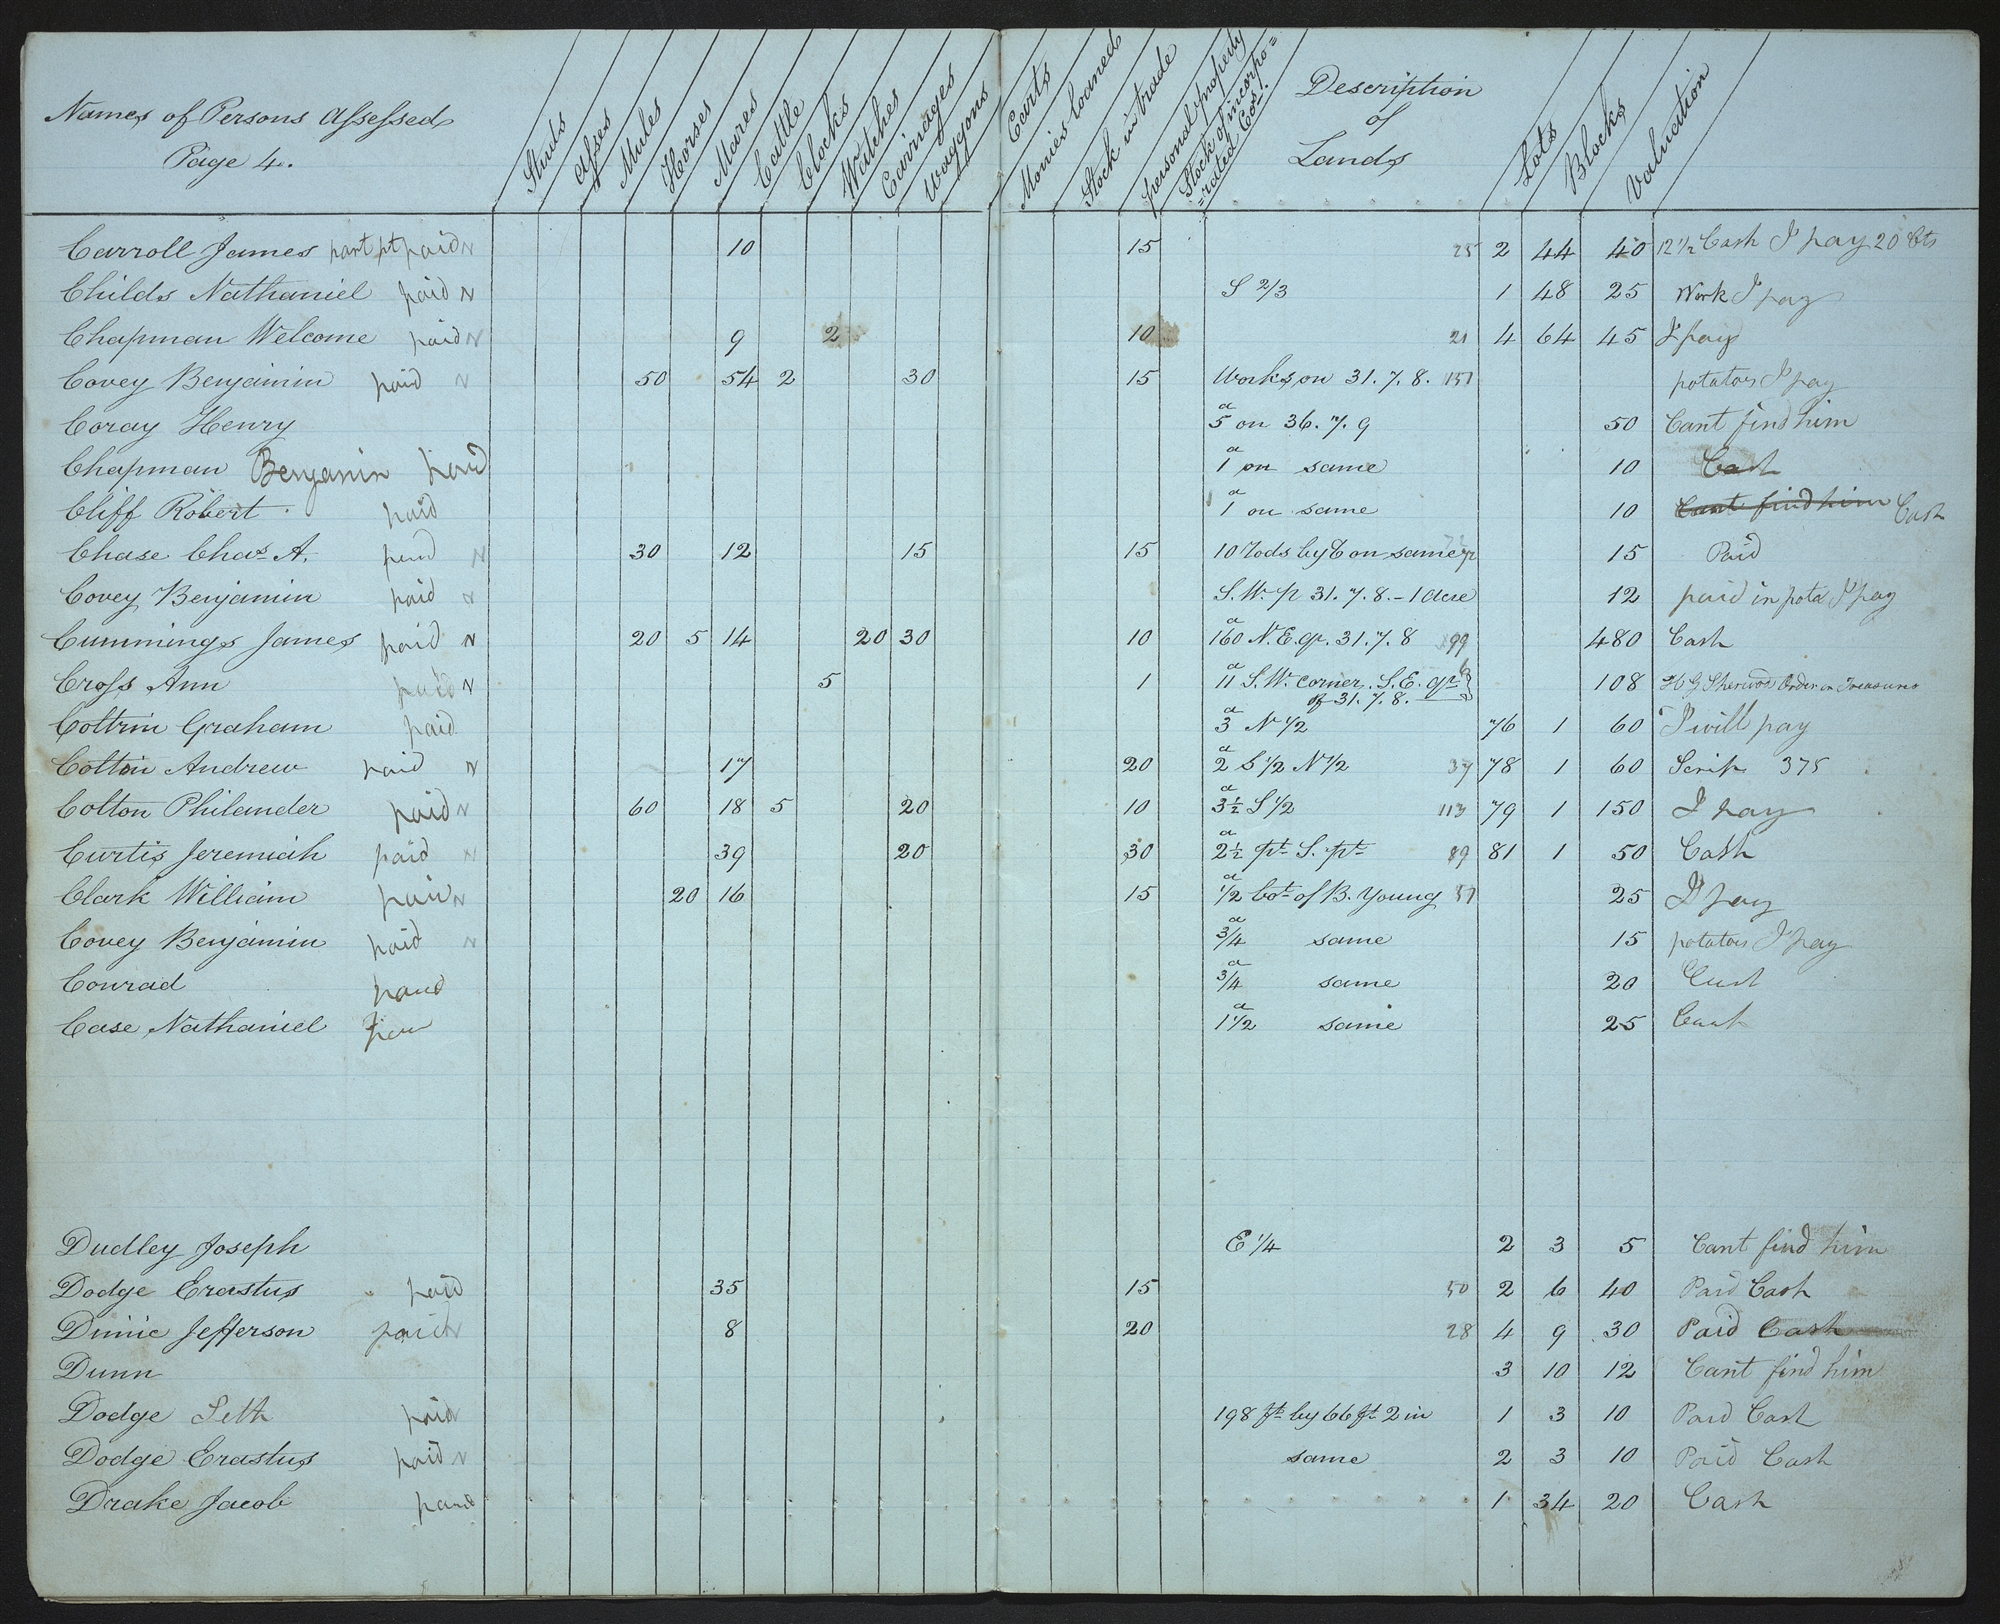 Names of Persons Assessed
Page 4.
Studs Asses Mules Horses Mares Cattle Clocks Watches Carriages Waggons Carts Monies loaned Stock in trade personal property Stock of incorpo=
=rated Cos. Description
of
Lands Lots Blocks Valuation
Carroll James part pt paid N 10 15 25 2 44 40 12 1/2 Cash I pay 20 Cts
Childs Nathaniel paid N S 2/3 1 48 25 Work I pay
Chapman Welcome paid N 9 2 10 21 4 64 45 I pay
Covey Benjamin paid N 50 54 2 30 15 Works on 31. 7. 8. 151 potatoes I pay
Coray Henry 5 a on 36. 7. 9 50 Cant find him
Chapman Benjamin paid 1 a on same 10 Cash
Cliff Robert paid 1 a on same 10 Cant find him Cash
Chase Chas. A. paid N 30 12 15 15 10 Rods by 6 on same 72 15 Paid
Covey Benjamin paid N S. W. p 31. 7. 8. - 1 acre 12 paid in pota I pay
Cummings James paid N 20 5 14 20 30 10 160 a N. E. qr. 31. 7. 8 99 480 Cash
Cross Ann paid N 5 1 11 a S. W. corner. S. E. qr 6
of 31. 7. 8. 108 H G Sherwood Order on Treasurer
Coltrin Graham paid 3 a N 1/2 76 1 60 I will pay
Coltrin Andrew paid N 17 20 2 a S 1/2 N 1/2 37 78 1 60 Scrip 375
Colton Philander paid N 60 18 5 20 10 3 1/2 a S 1/2 113 79 1 150 I pay
Curtis Jeremiah paid N 39 20 30 2 1/2 a pt S. pt 89 81 1 50 Cash
Clark William paid N 20 16 15 1/2 a bot of B. Young 51 25 I pay
Covey Benjamin paid N 3/4 a same 15 potatoes I pay
Conrad paid 3/4 a same 20 Cash
Case Nathaniel 1 1/2 a same 25 Cash
Dudley Joseph E 1/4 2 3 5 Cant find him
Dodge Erastus paid 35 15 50 2 6 40 Paid Cash
Dimic Jefferson paid N 8 20 28 4 9 30 Paid Cash
Dunn 3 10 12 Cant find him
Dodge Seth paid 198 ft by 66 ft 2 in 1 3 10 Paid Cash
Dodge Erastus paid N same 2 3 10 Paid Cash
Drake Jacob paid 1 34 20 Cash